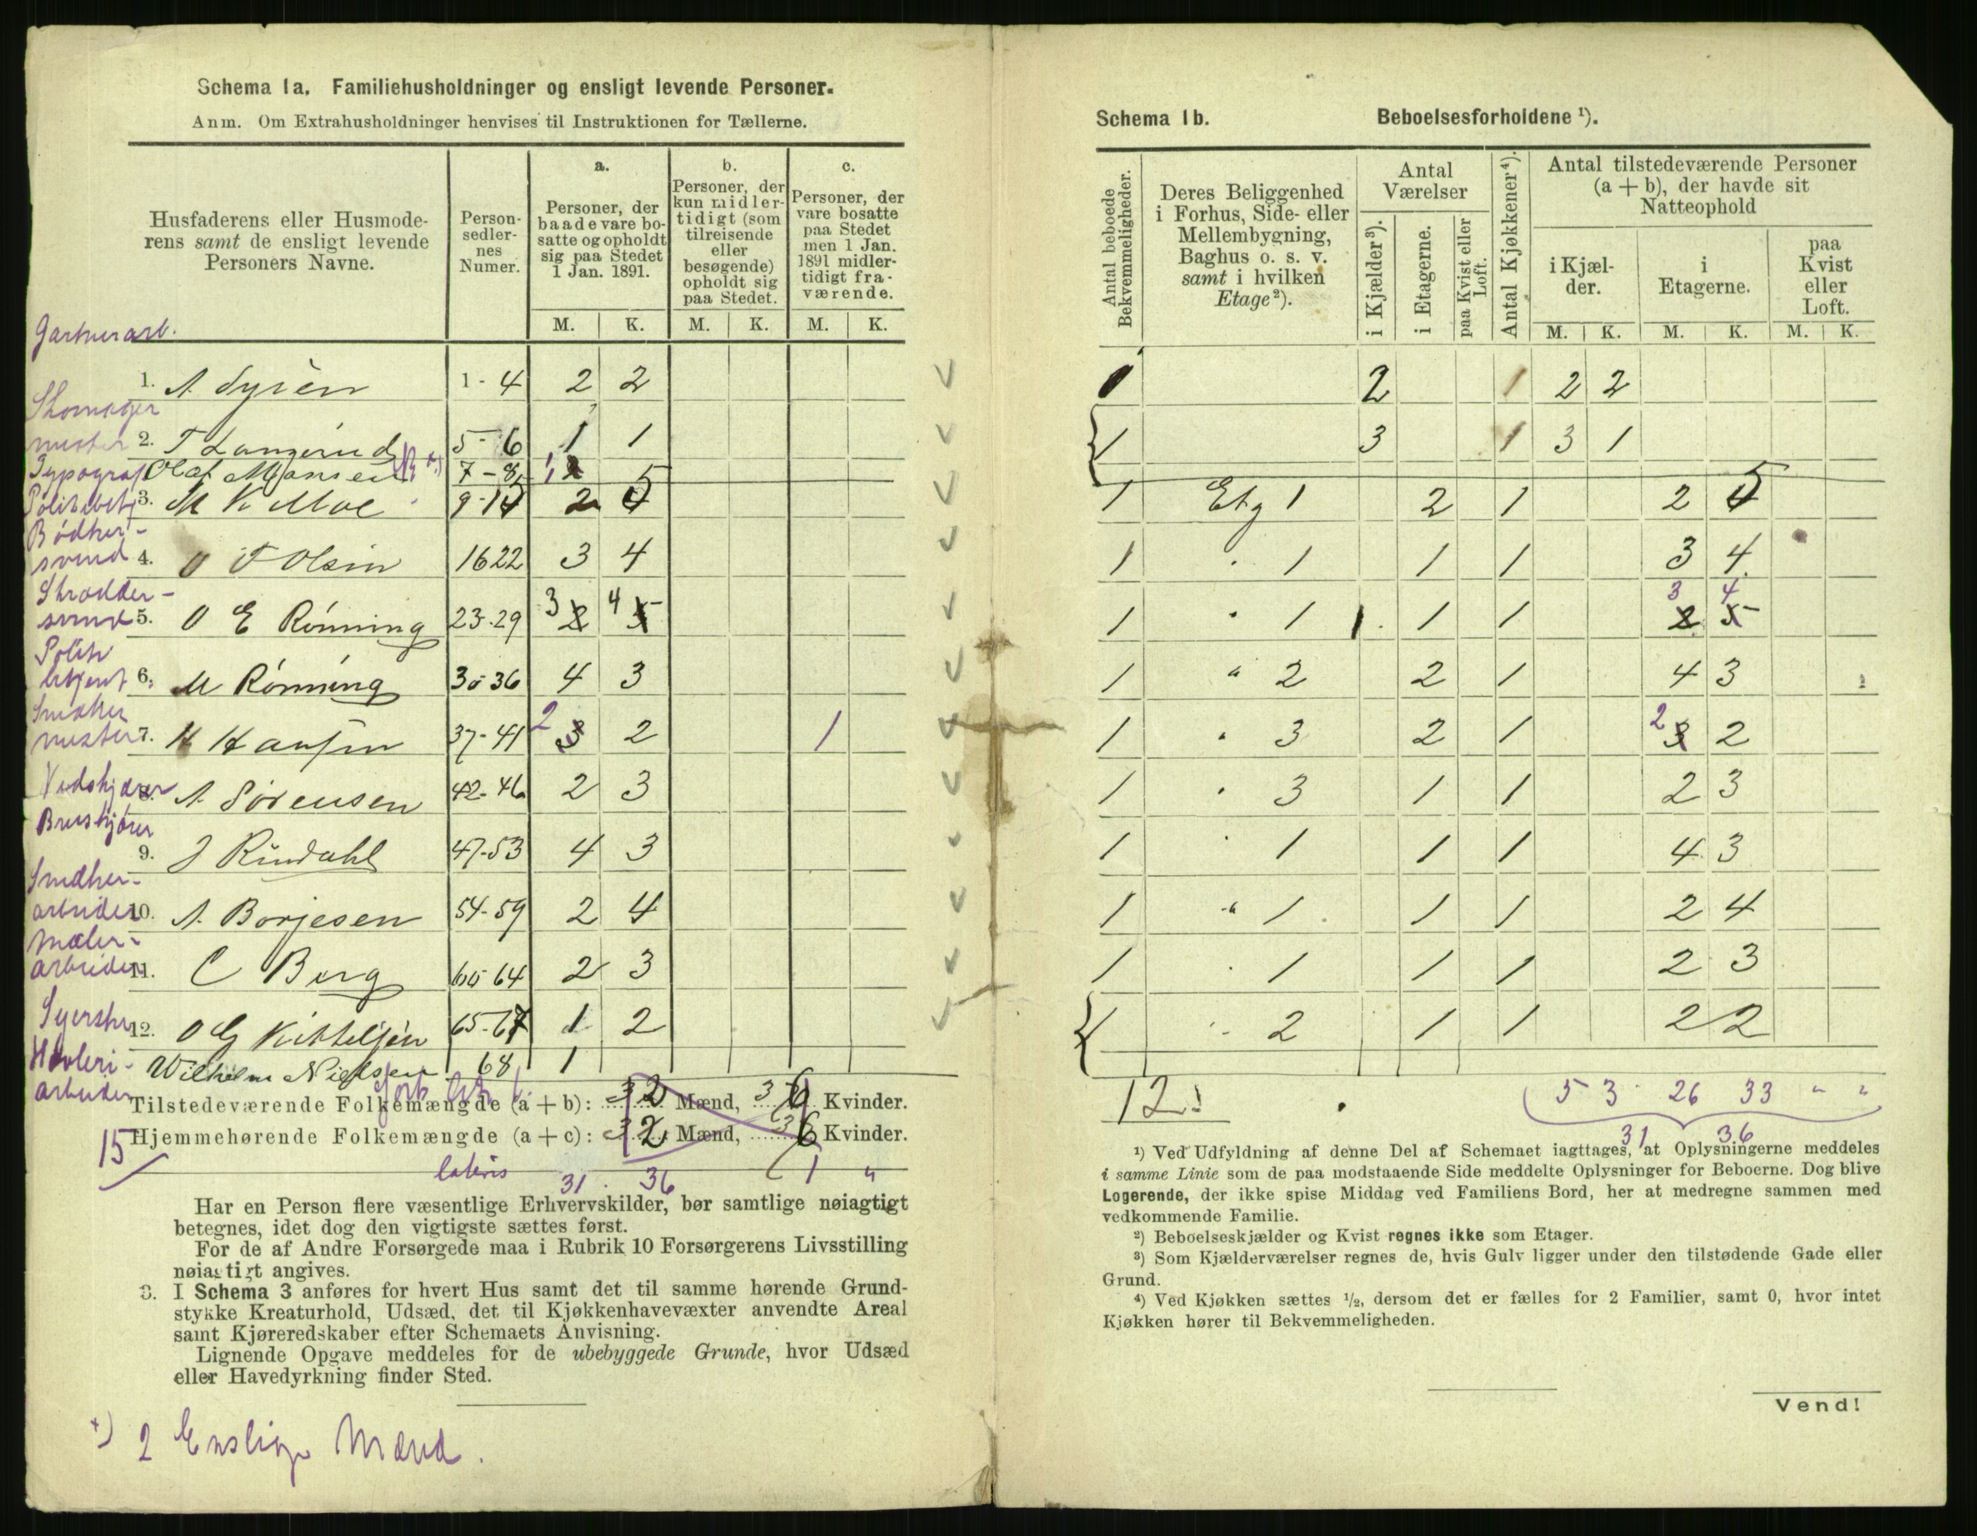 Schema 1a. Familiehusholdninger og ensligt levende Personer.
Anm. Om Extrahusholdninger henvises til Instruktionen for Tællerne.
Husfaderens eller Husmoderens samt de ensligt levende Personers Navne.
Personsedlernes Numer.
a. Personer, der baade vare bosatte og opholdt sig paa Stedet 1 Jan. 1891.
b. Personer, der kun midlertidigt (som tilreisende eller besøgende) opholdt sig paa Stedet.
c. Personer, der vare bosatte paa Stedet men 1 Jan. 1891 midlertidigt fraværende.
M. K. M. K. M. K.
1. A. Syrèn 1-4 2 2
Skomager
mester 2. T Langerud 5-6 1 1
Typograf Olaf Monsen 7-8
3. M K Moe 9-15 2 5
Bødker-
svend 4. O T Olsen 1622 3 4
Skrædder-
svend 5. O E Rønning 23-29 3 4
Politi
betjent 6. M Rønning 30-36 4 3
Snedker
mester 7. H Hansen 37-41 2 2 1
Vedskjærer 8. A. Sørensen 42-46 2 3
9. J Rindahl 47-53 4 3
Snedker-
arbeider 10. A. Borjesen 54-59 2 4
Maler-
arbeider 11. C Berg 60-64 2 3
Syerske 12. O G Kittelsen 65-67 1 2
Høvleri-
arbeider Wilhelm Nielsen 68 1
Tilstedeværende Folkemængde (a + b): 32 Mænd, 36 Kvinder.
Hjemmehørende Folkemængde (a + c): 32 Mænd, 36 Kvinder.
15
31. 36 1 "
Har en Person flere væsentlige Erhvervskilder, bør samtlige nøiagtigt
betegnes, idet dog den vigtigste sættes først.
For de af Andre Forsørgede maa i Rubrik 10 Forsørgerens Livsstilling
nøiagtigt angives.
3. I Schema 3 anføres for hvert Hus samt det til samme hørende Grund-
stykke Kreaturhold, Udsæd, det til Kjøkkenhavevæxter anvendte Areal
samt Kjøreredskaber efter Schemaets Anvisning.
Lignende Opgave meddeles for de ubebyggede Grunde, hvor Udsæd
eller Havedyrkning finder Sted.
+) 2 Enslige Mænd.
Schema 1b. Beboelsesforholdene ¹).
Antal beboede Bekvemmeligheder.
Deres Beliggenhed i Forhus, Side- eller Mellembygning, Baghus o. s. v. samt i hvilken Etage ²).
Antal Værelser
i Kjælder ³). i Etagerne. paa Kvist eller Loft.
Antal Kjøkkener ⁴).
Antal tilstedeværende Personer (a + b), der havde sit Natteophold
i Kjælder. i Etagerne. paa Kvist eller Loft.
M. K. M. K. M. K.
1 2 1 2 2
1 3 1 3 1
1 Etg 1 2 1 2 5
1 " 1 1 1 3 4
1 " 1 1 1 3 4
1 " 2 2 1 4 3
1 " 3 2 1 2 2
1 " 3 1 1 2 3
1 " 1 1 1 4 3
1 " 1 1 1 2 4
1 " 1 1 1 2 3
1 " 2 1 1 2 2
12 5 3 26 33 " "
31 36
¹) Ved Udfyldning af denne Del af Schemaet iagttages, at Oplysningerne meddeles
i samme Linie som de paa modstaaende Side meddelte Oplysninger for Beboerne. Dog blive
Logerende, der ikke spise Middag ved Familiens Bord, her at medregne sammen med
vedkommende Familie.
²) Beboelseskjælder og Kvist regnes ikke som Etager.
³) Som Kjælderværelser regnes de, hvis Gulv ligger under den tilstødende Gade eller
Grund.
⁴) Ved Kjøkken sættes ½, dersom det er fælles for 2 Familier, samt 0, hvor intet
Kjøkken hører til Bekvemmeligheden.
Vend!